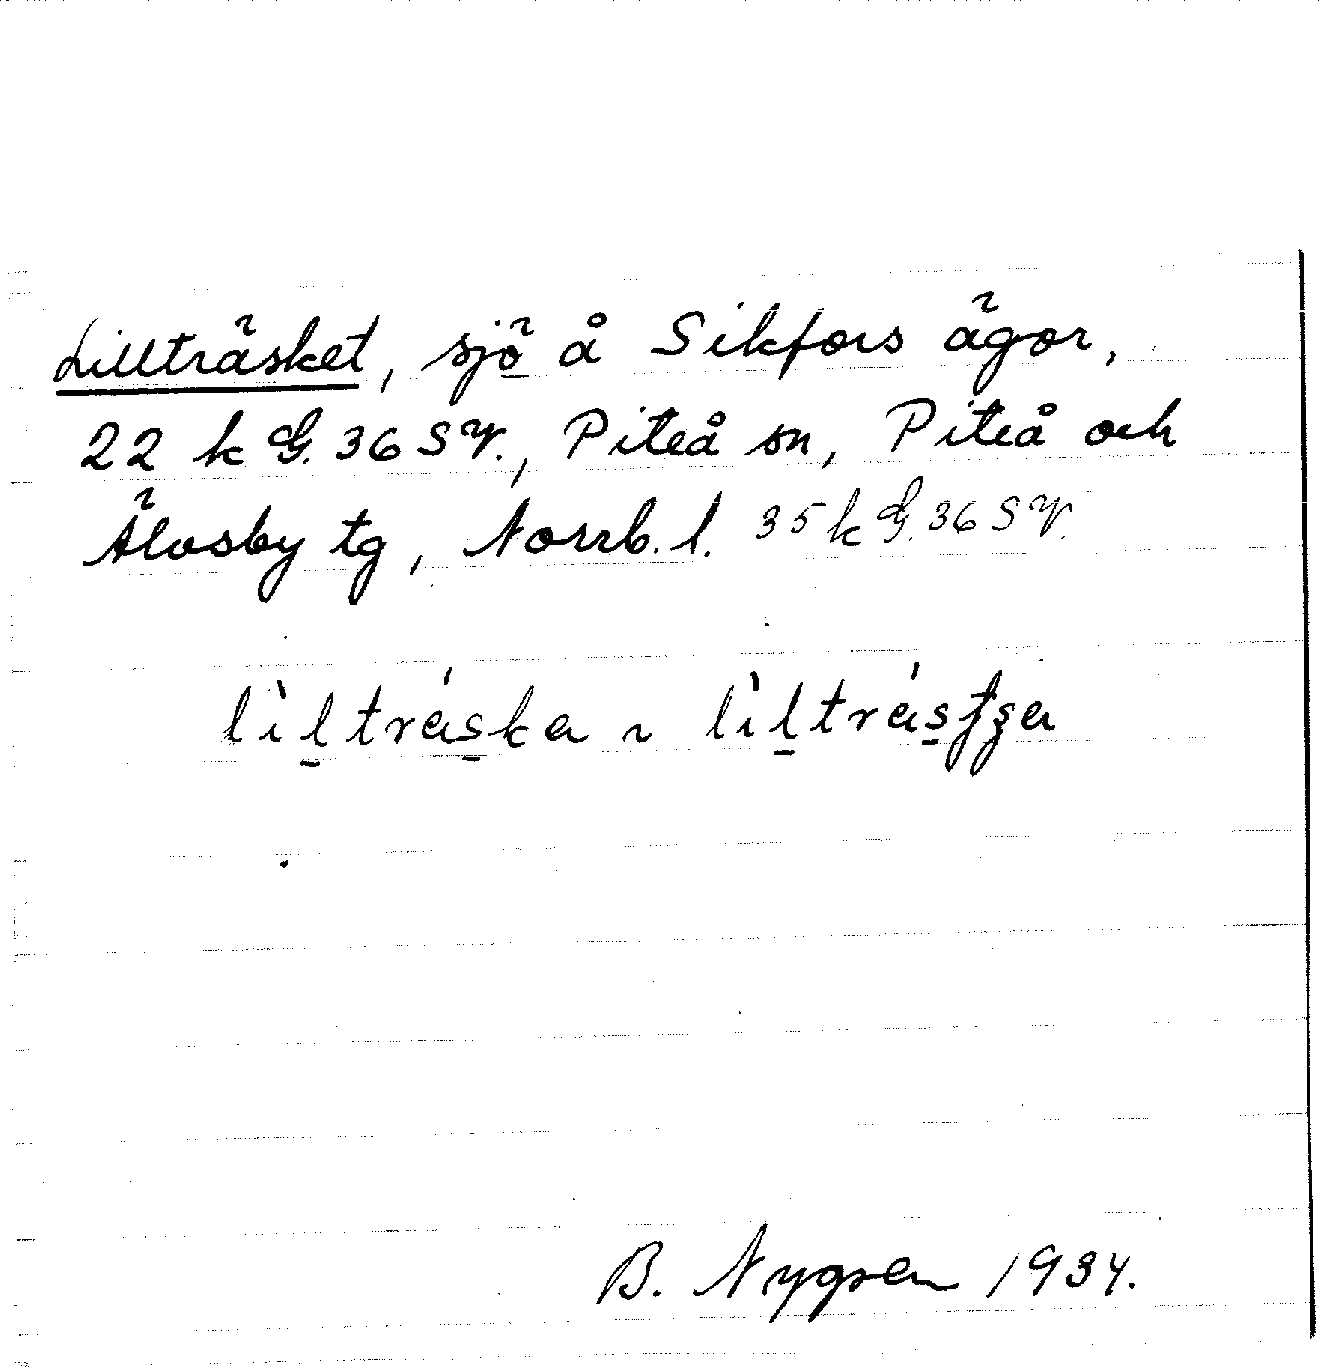 Lillträsket, sjö å Sikfors ägor,
22 k G. 36 SV., Piteå sn, Piteå och
Älvsby tg, Norrb. l. 35 k G. 36 SV.
lìltráska ~ lìltrásʃʒa
B. Nygren 1934.